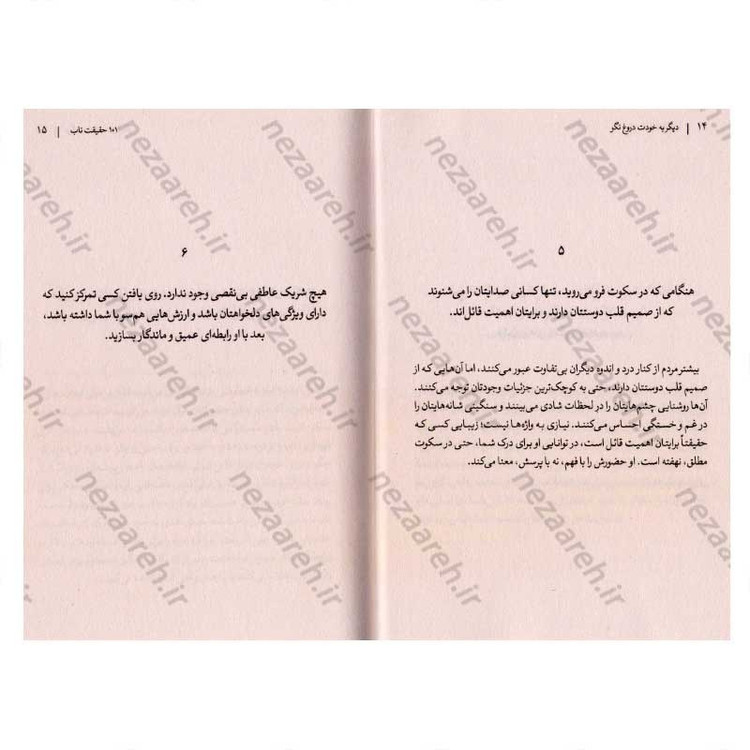 ۱۴ | دیگر به خودت دروغ نگو
۵
هنگامی که در سکوت فرو می‌روید، تنها کسانی صدایتان را می‌شنوند
که از صمیم قلب دوستتان دارند و برایتان اهمیت قائل‌اند.
بیشتر مردم از کنار درد و اندوه دیگران بی‌تفاوت عبور می‌کنند، اما آن‌هایی که از
صمیم قلب دوستتان دارند، حتی به کوچک‌ترین جزئیات وجودتان توجه می‌کنند.
آن‌ها روشنایی چشم‌هایتان را در لحظات شادی می‌بینند و سنگینی شانه‌هایتان را
در غم و خستگی احساس می‌کنند. نیازی به واژه‌ها نیست؛ زیبایی کسی که
حقیقتاً برایتان اهمیت قائل است، در توانایی او برای درک شما، حتی در سکوت
مطلق، نهفته است. او حضورش را با فهم، نه با پرسش، معنا می‌کند.
۱۰۱ حقیقت ناب | ۱۵
۶
هیچ شریک عاطفی بی‌نقصی وجود ندارد. روی یافتن کسی تمرکز کنید که
دارای ویژگی‌های دلخواهتان باشد و ارزش‌هایی هم‌سو با شما داشته باشد،
بعد با او رابطه‌ای عمیق و ماندگار بسازید.
nezaareh.ir
nezaareh.ir
nezaareh.ir
nezaareh.ir
nezaareh.ir
nezaareh.ir
nezaareh.ir
nezaareh.ir
nezaareh.ir
nezaareh.ir
nezaareh.ir
nezaareh.ir